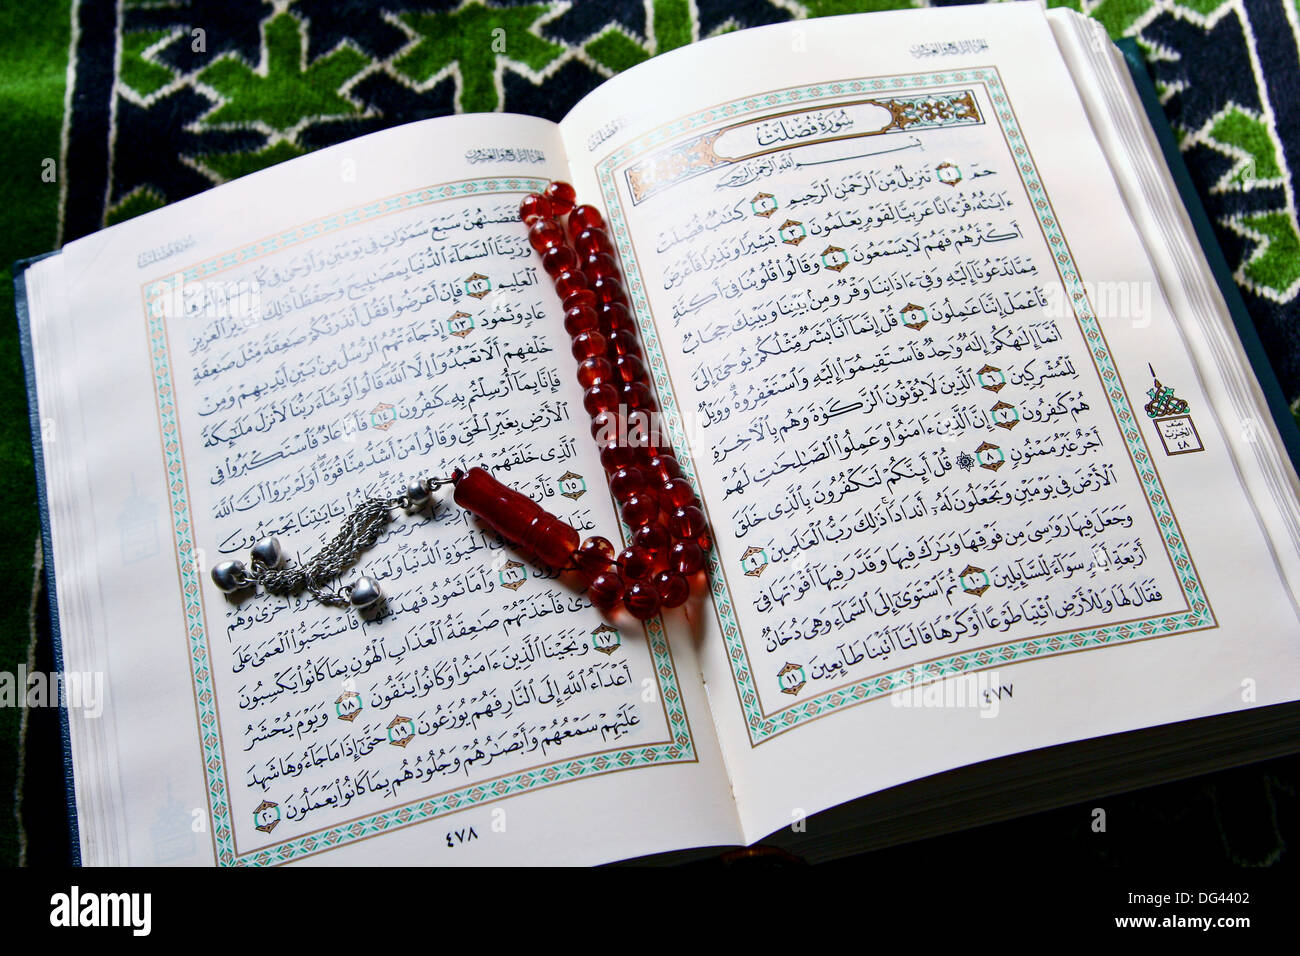 الجزء الرابع والعشرون
سورة فصلت
سُورَةُ فُصِّلَتْ
بِسْمِ ٱللَّهِ ٱلرَّحْمَٰنِ ٱلرَّحِيمِ
حمٓ ١ تَنزِيلٌ مِّنَ ٱلرَّحْمَٰنِ ٱلرَّحِيمِ ٢ كِتَٰبٌ فُصِّلَتْ
ءَايَٰتُهُۥ قُرْءَانًا عَرَبِيًّا لِّقَوْمٍ يَعْلَمُونَ ٣ بَشِيرًا وَنَذِيرًا فَأَعْرَضَ
أَكْثَرُهُمْ فَهُمْ لَا يَسْمَعُونَ ٤ وَقَالُوا۟ قُلُوبُنَا فِىٓ أَكِنَّةٍ
مِّمَّا تَدْعُونَآ إِلَيْهِ وَفِىٓ ءَاذَانِنَا وَقْرٌ وَمِنۢ بَيْنِنَا وَبَيْنِكَ حِجَابٌ
فَٱعْمَلْ إِنَّنَا عَٰمِلُونَ ٥ قُلْ إِنَّمَآ أَنَا۠ بَشَرٌ مِّثْلُكُمْ يُوحَىٰٓ إِلَىَّ
أَنَّمَآ إِلَٰهُكُمْ إِلَٰهٌ وَٰحِدٌ فَٱسْتَقِيمُوٓا۟ إِلَيْهِ وَٱسْتَغْفِرُوهُ وَوَيْلٌ
لِّلْمُشْرِكِينَ ٦ ٱلَّذِينَ لَا يُؤْتُونَ ٱلزَّكَوٰةَ وَهُم بِٱلْءَاخِرَةِ
هُمْ كَٰفِرُونَ ٧ إِنَّ ٱلَّذِينَ ءَامَنُوا۟ وَعَمِلُوا۟ ٱلصَّٰلِحَٰتِ لَهُمْ
أَجْرٌ غَيْرُ مَمْنُونٍ ٨ ۞ قُلْ أَئِنَّكُمْ لَتَكْفُرُونَ بِٱلَّذِى خَلَقَ
ٱلْأَرْضَ فِى يَوْمَيْنِ وَتَجْعَلُونَ لَهُۥٓ أَندَادًا ذَٰلِكَ رَبُّ ٱلْعَٰلَمِينَ ٩
وَجَعَلَ فِيهَا رَوَٰسِىَ مِن فَوْقِهَا وَبَٰرَكَ فِيهَا وَقَدَّرَ فِيهَآ أَقْوَٰتَهَا فِىٓ
أَرْبَعَةِ أَيَّامٍ سَوَآءً لِّلسَّآئِلِينَ ١٠ ثُمَّ ٱسْتَوَىٰٓ إِلَى ٱلسَّمَآءِ وَهِىَ دُخَانٌ
فَقَالَ لَهَا وَلِلْأَرْضِ ٱئْتِيَا طَوْعًا أَوْ كَرْهًا قَالَتَآ أَتَيْنَا طَآئِعِينَ ١١
نصف
الحزب
٤٨
٤٧٧
الجزء الرابع والعشرون
سورة فصلت
فَقَضَىٰهُنَّ سَبْعَ سَمَٰوَاتٍ فِى يَوْمَيْنِ وَأَوْحَىٰ فِى كُلِّ سَمَآءٍ أَمْرَهَا
وَزَيَّنَّا ٱلسَّمَآءَ ٱلدُّنْيَا بِمَصَٰبِيحَ وَحِفْظًا ذَٰلِكَ تَقْدِيرُ ٱلْعَزِيزِ
ٱلْعَلِيمِ ١٢ فَإِنْ أَعْرَضُوا۟ فَقُلْ أَنذَرْتُكُمْ صَٰعِقَةً مِّثْلَ صَٰعِقَةِ
عَادٍ وَثَمُودَ ١٣ إِذْ جَآءَتْهُمُ ٱلرُّسُلُ مِنۢ بَيْنِ أَيْدِيهِمْ وَمِنْ
خَلْفِهِمْ أَلَّا تَعْبُدُوٓا۟ إِلَّا ٱللَّهَ قَالُوا۟ لَوْ شَآءَ رَبُّنَا لَأَنزَلَ مَلَٰٓئِكَةً
فَإِنَّا بِمَآ أُرْسِلْتُم بِهِۦ كَٰفِرُونَ ١٤ فَأَمَّا عَادٌ فَٱسْتَكْبَرُوا۟ فِى
ٱلْأَرْضِ بِغَيْرِ ٱلْحَقِّ وَقَالُوا۟ مَنْ أَشَدُّ مِنَّا قُوَّةً أَوَلَمْ يَرَوْا۟ أَنَّ ٱللَّهَ
ٱلَّذِى خَلَقَهُمْ هُوَ بِـَٔايَٰتِنَا يَجْحَدُونَ
١٥ فَأَرْسَ
عَذَ
ٱلْحَيَوٰةِ ٱلدُّنْيَا وَلَعَ أَخْزَىٰ وَهُمْ
١٦ وَأَمَّا ثَمُودُ فَهَدَ فَٱسْتَحَبُّوا۟ ٱلْعَمَىٰ عَلَى
فَأَخَذَتْهُمْ صَٰعِقَةُ ٱلْعَذَابِ ٱلْهُونِ بِمَا كَانُوا۟ يَكْسِبُونَ
١٧ وَنَجَّيْنَا ٱلَّذِينَ ءَامَنُوا۟ وَكَانُوا۟ يَتَّقُونَ ١٨ وَيَوْمَ يُحْشَرُ
أَعْدَآءُ ٱللَّهِ إِلَى ٱلنَّارِ فَهُمْ يُوزَعُونَ ١٩ حَتَّىٰٓ إِذَا مَا جَآءُوهَا شَهِدَ
عَلَيْهِمْ سَمْعُهُمْ وَأَبْصَٰرُهُمْ وَجُلُودُهُم بِمَا كَانُوا۟ يَعْمَلُونَ ٢٠
٤٧٨
alamy stock photo
DG4402
www.alamy.com